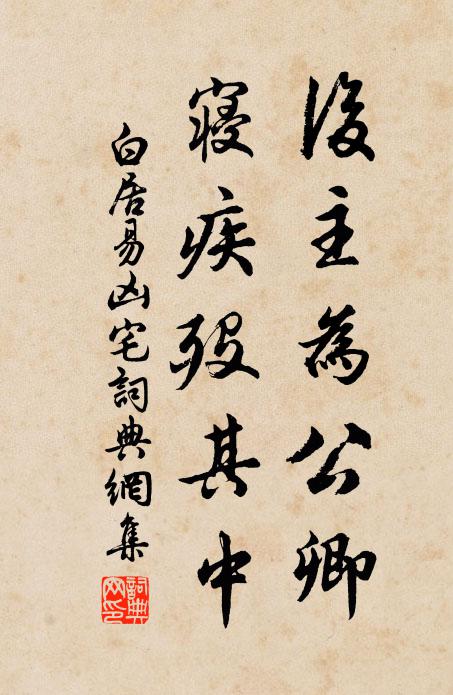 後主為公卿
寢疾歿其中
白居易凶宅詞典網集
詞典網印